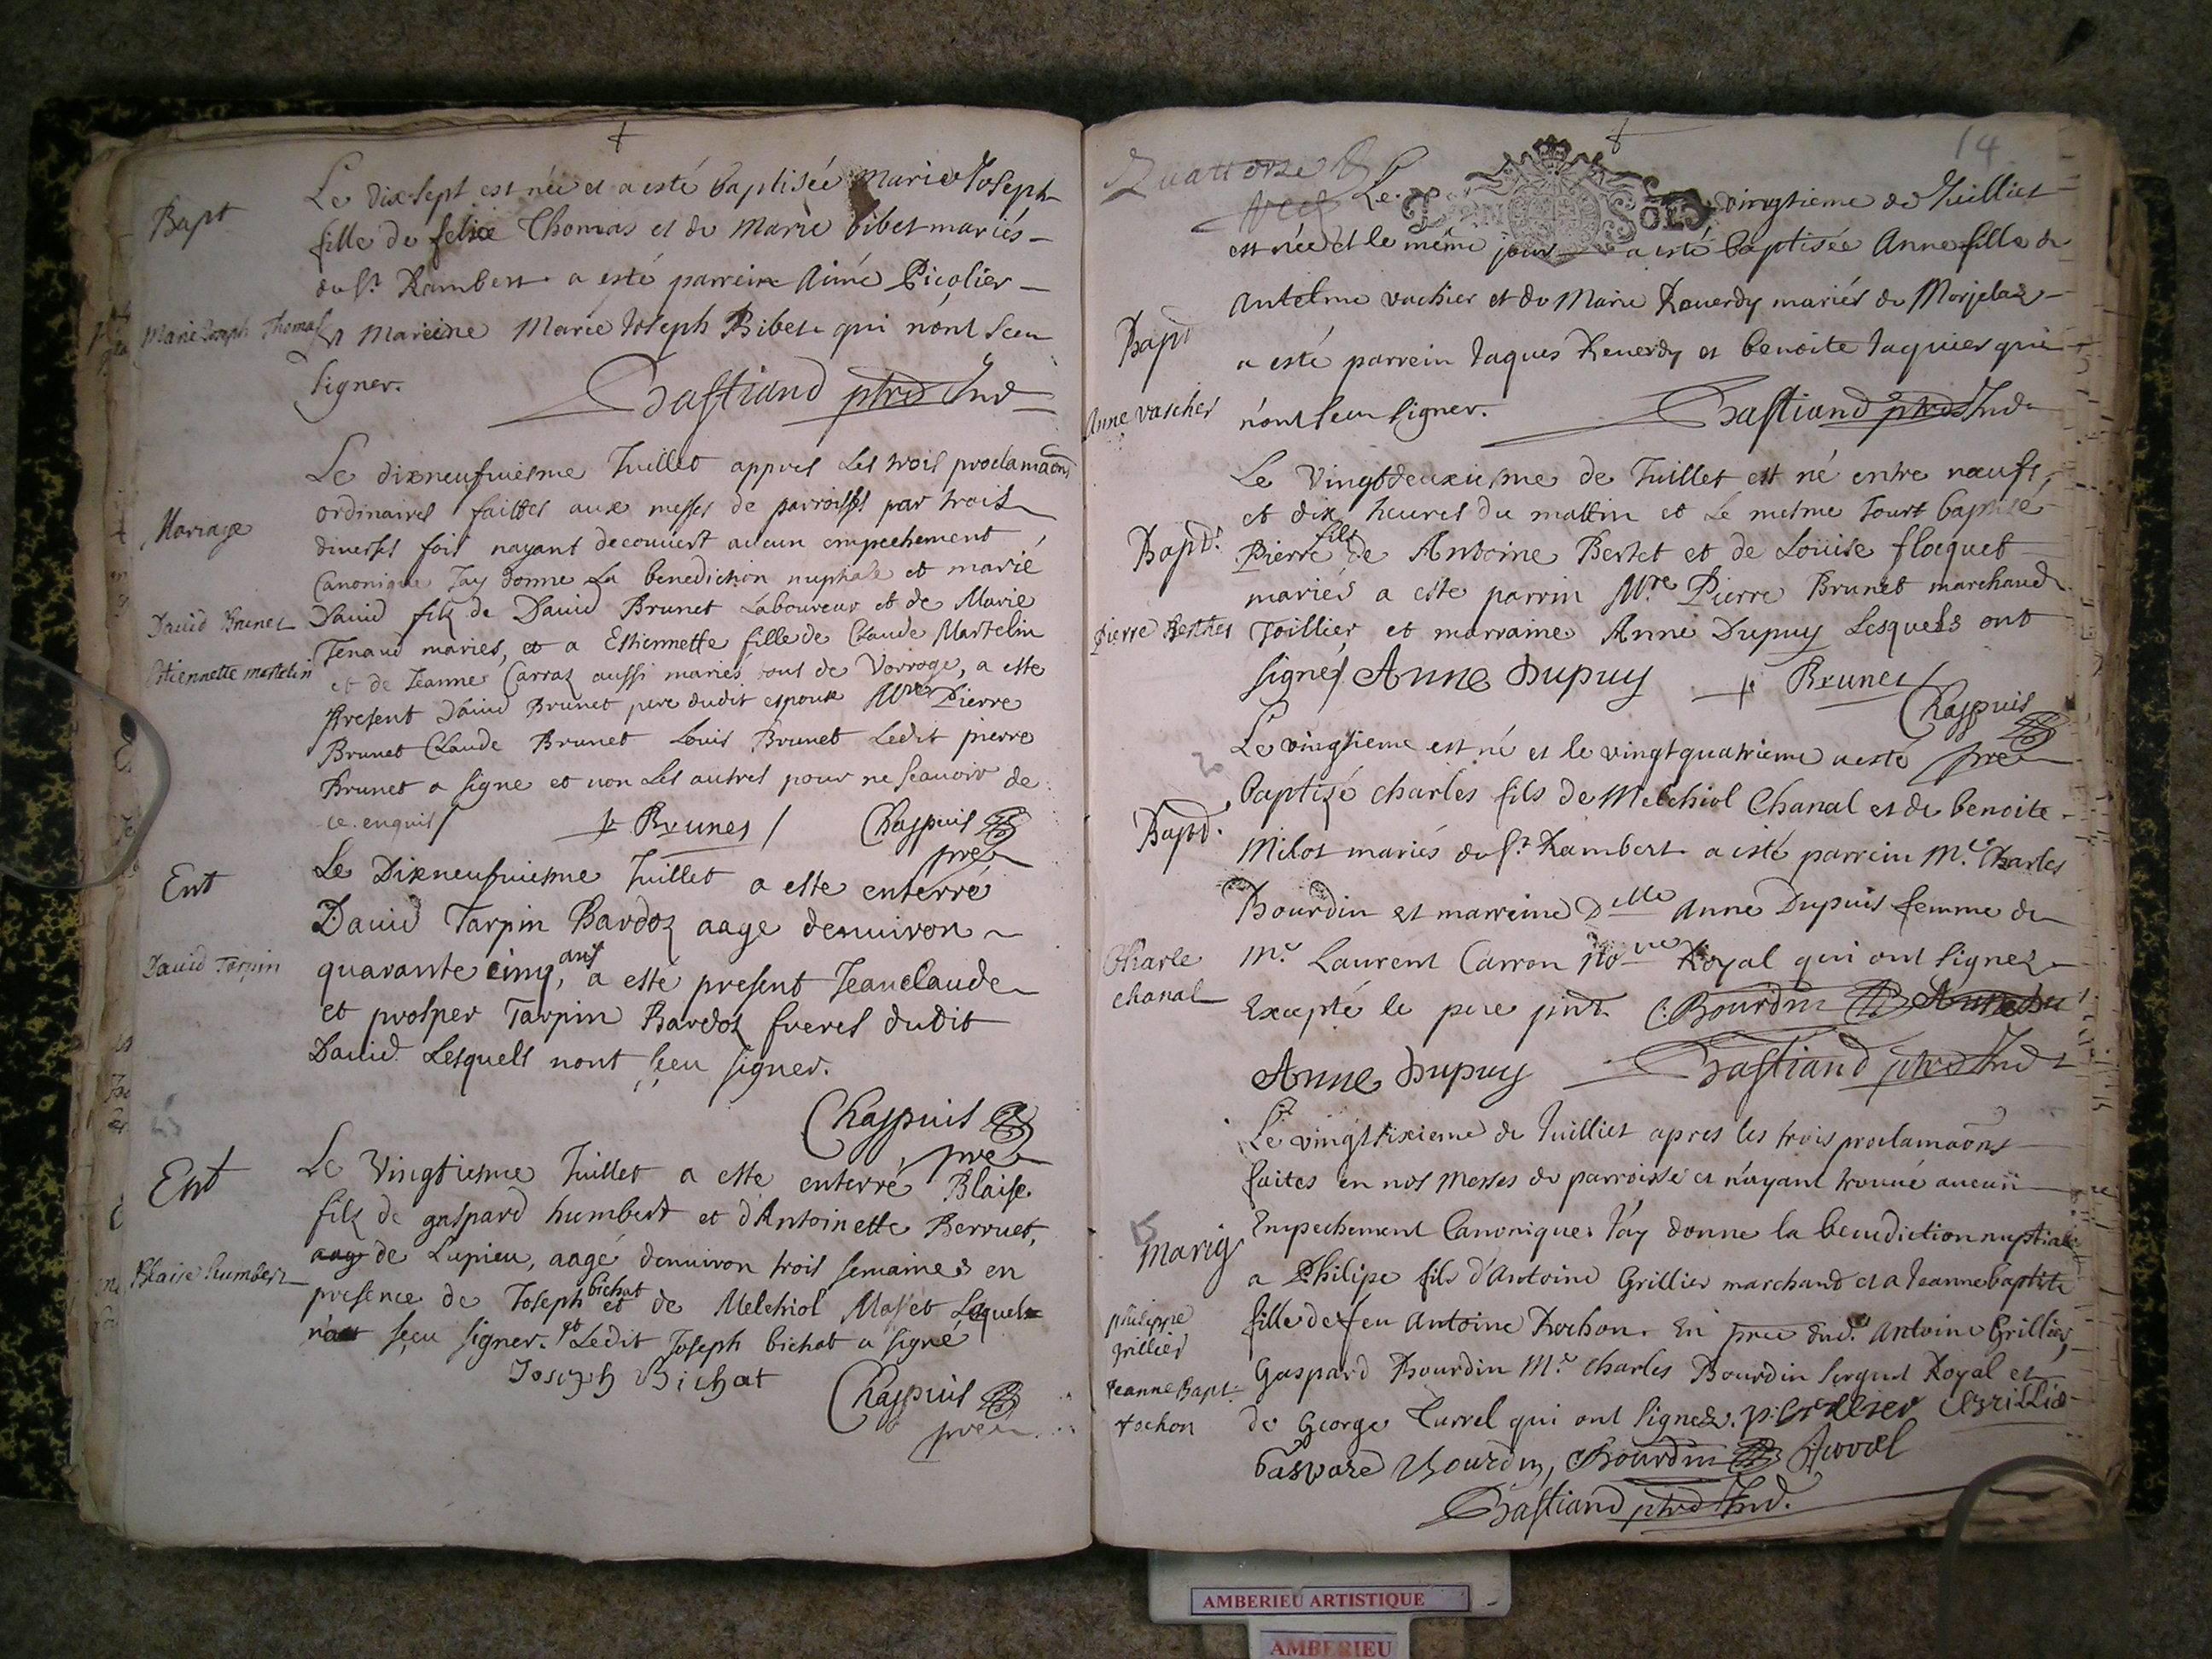 Bapt
Le dix sept est née et a esté baptisée Marie Joseph
fille de felix Thomas et de Marie bibet mariés
du St Rambert a esté parrein Aimé Picolier
Marie Joseph Thomas
et Mareine Marie Joseph Bibet qui n'ont sceu
signer.
Bastiand ptre Ind
Le dixneufuiesme Juillet appres les trois proclamaõns
ordinaires faittes aux messes de parroisses par trois
Mariage
diverses fois nayant decouvert aucun empechement
Canonique Jay donne La benediction nuptiale et marié
David Brunet
David filz de David Brunet Laboureur et de Marie
Tenaud maries, et a Estiennette fille de Claude Martelin
Estiennette martelin
et de Jeanne Carraz aussi mariés tous de Vorroge, a este
Present David Brunet pere dudit espoux Mre Pierre
Brunet Claude Brunet Louis Brunet Ledit pierre
Brunet a signe et non Les autres pour ne scauoir de
ce enquis
p Brunet
Chappuis
pre
Ent
Le Dixneufuiesme Juillet a este enterré
David Tarpin Bardoz aage denuiron
David Tarpin
quarante cinq ans, a esté present Jeanclaude
et prosper Tarpin Bardoz freres dudit
David Lesquels nont sceu signer.
Chappuis
pre
Ent
Le Vingtiesme Juillet a este enterré Blaise
filz de gaspard humbert et d'Antoinette Berruet,
aag de Lupieu, aagé denuiron trois semaines en
Blaise humbert
presence de Joseph bichat et de Melchiol Masset Lequel
n'a sceu signer. et Ledit Joseph bichat a signé
Joseph Bichat
Chappuis
pre
14
Quattorze
Le vingtieme de Juilliet
est née et le même jour a esté baptisée Anne fille de
Antelme vachier et de Marie Reuerdy mariés de Morjelas
Bapt
a esté parrein Jaques Reuerdy et benoite Jaquier qui
Anne vascher
n'ont sceu signer.
Bastiand ptre Ind
Le Vingtdeuxiesme de Juillet est né entre nœufs
et dix heures du mattin et Le mesme Jourt baptisé
Bapt.
Pierre fils de Antoine Bertet et de Loüise flocquet
mariés a este parrin Mre Pierre Brunet marchand
Pierre Berthet
Toillier, et marraine Anne Dupuy Lesquels ont
signes Anne Dupuy
p Brunet
Chappuis
pre
Le vingtieme est né et le vingtquatrieme a esté
baptizé charles fils de Melchiol Chanal et de benoite
Bapt.
Milot mariés du St Rambert a esté parrein Me Charles
Bourdin et marreine Dlle Anne Dupuis femme de
Charle
Me Laurent Carron Nore Royal qui ont signez
chanal
Excepté le pere pnt.
C. Bourdin
Anne Du
Anne Dupuy
Bastiand ptre Ind
Le vingtsixieme de Juilliet apres les trois proclamaõns
faites en nos Messes de parroisse et n'ayant trouué aucun
Empechement Canonique. J'ay donne la benediction nuptiale
marig
a Philipe fils d'Antoine Grillier marchand et a Jeanne baptite
philippe
grillier
fille de feu Antoine Rochon. En pnce dud. Antoine Grillier,
Gaspard Bourdin Me charles Bourdin sergent Royal et
Jeanne Bapt
rochon
de George Turrel qui ont signez. P. Grillier Grillie
Gaspard Bourdin, Bourdin
Bastiand ptre Ind.
AMBERIEU ARTISTIQUE
AMBERIEU